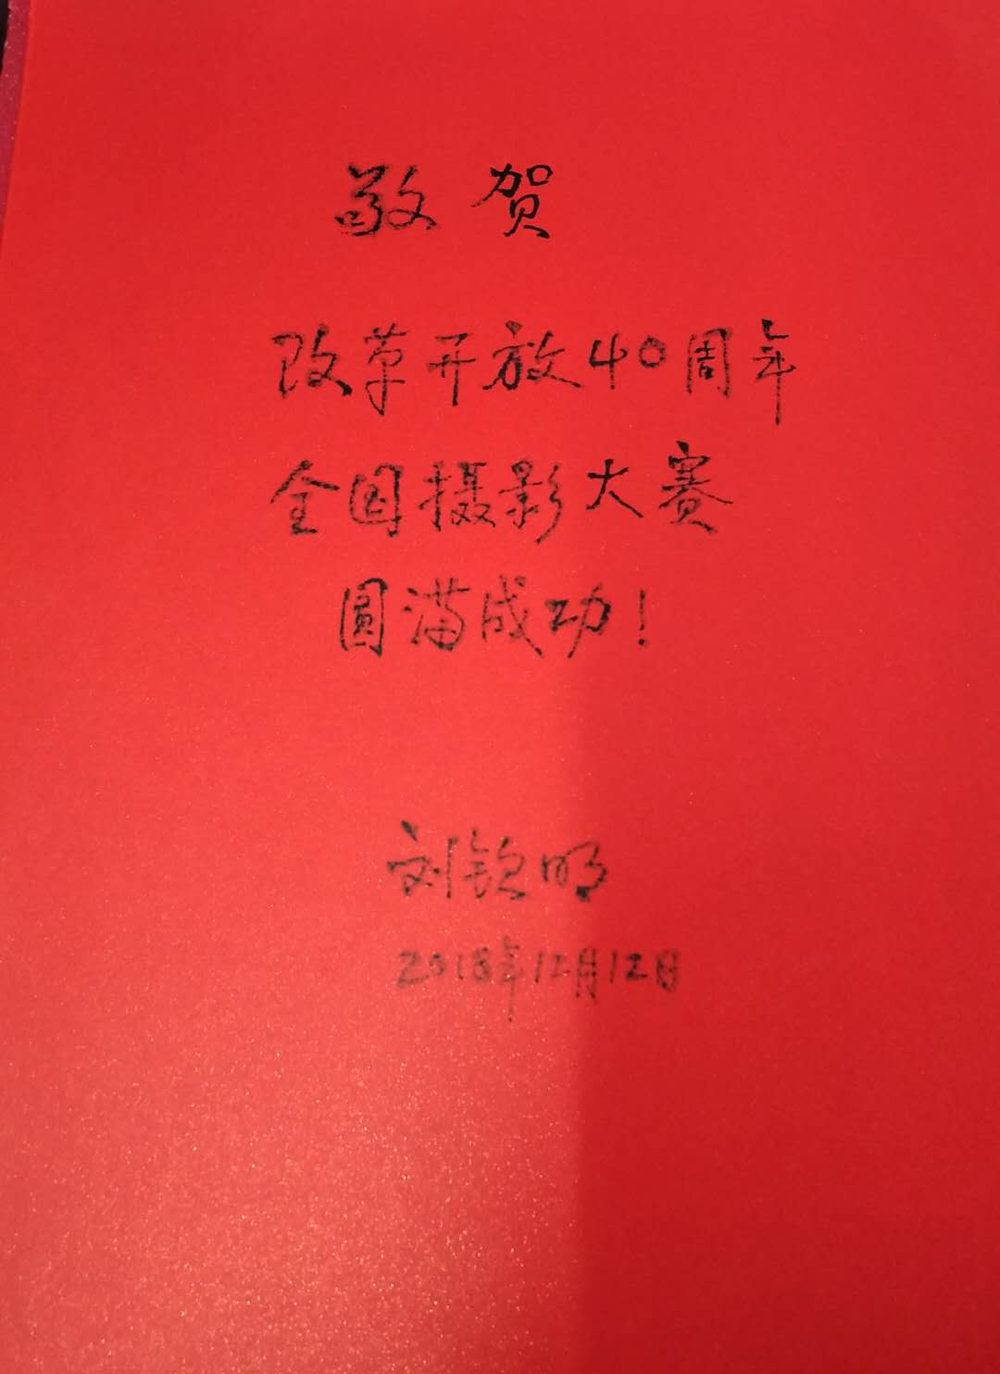 敬贺
改革开放40周年
全国摄影大赛
圆满成功!
刘钦明
2018年12月12日